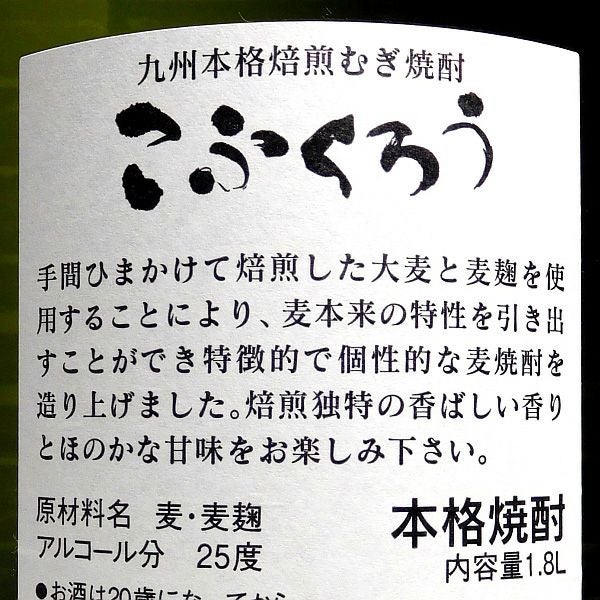 九州本格焙煎むぎ焼酎
こふくろう
手間ひまかけて焙煎した大麦と麦麹を使
用することにより、麦本来の特性を引き出
すことができ特徴的で個性的な麦焼酎を
造り上げました。焙煎独特の香ばしい香り
とほのかな甘味をお楽しみ下さい。
原材料名 麦・麦麹
本格焼酎
アルコール分 25度
内容量1.8L
●お酒は20歳になってから